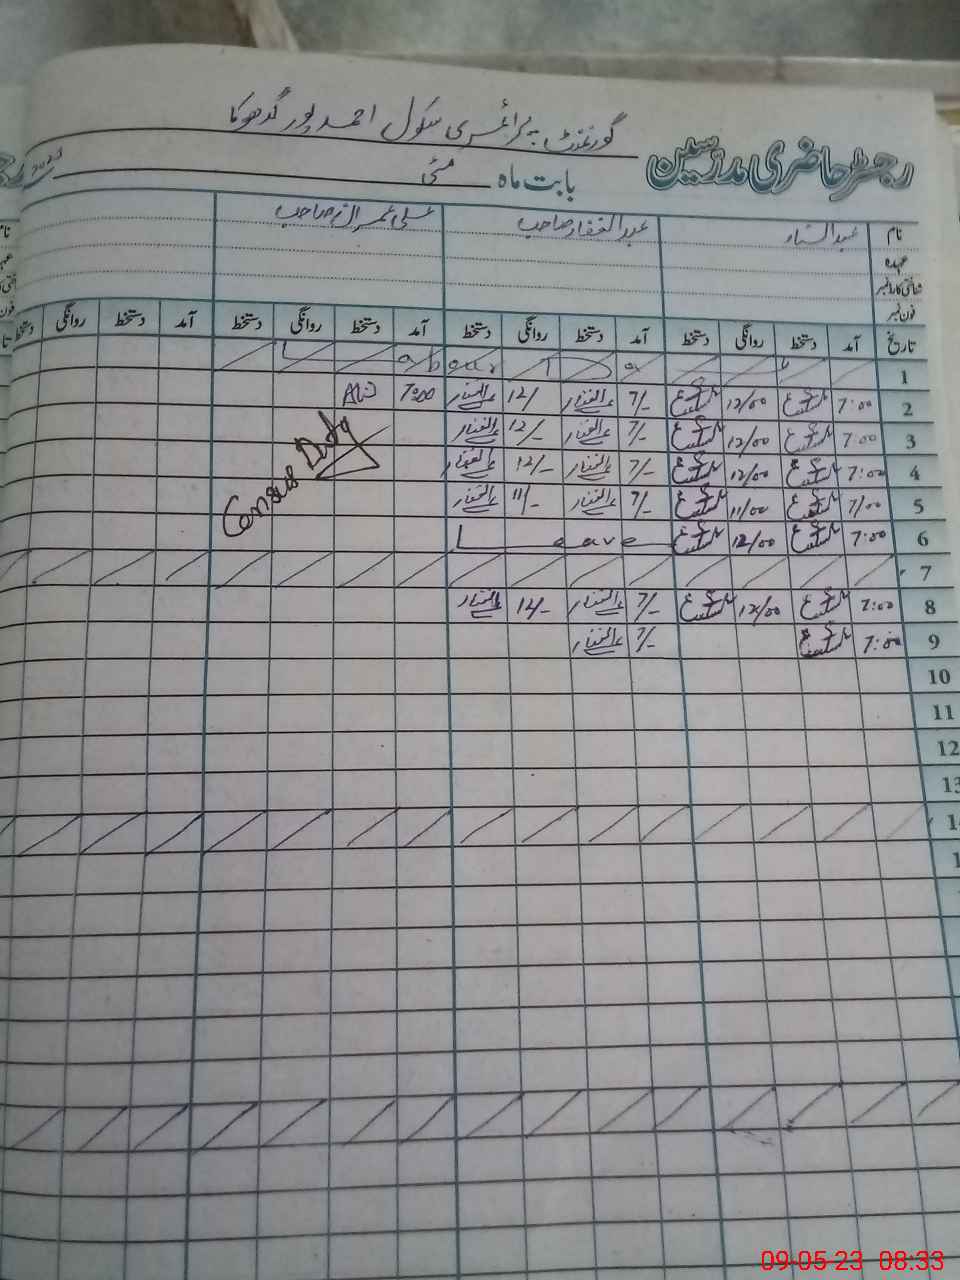 گورنمنٹ پرائمری سکول احمد پور
رجسٹر حاضری مدرسین
بابت ماہ مئی 2023
نام عبدالستار عبدالغفار صاحب علی عمران صاحب
عہدہ
شناختی کارڈ نمبر
فون نمبر
تاریخ آمد دستخط روانگی دستخط آمد دستخط روانگی دستخط آمد دستخط روانگی دستخط آمد دستخط روانگی دستخط
1 Labour Day
2 7:00 12/00 7/- عبدالغفار 12/- عبدالغفار 7:00
3 7:00 12/00 7/- عبدالغفار 12/- عبدالغفار
4 7:00 12/00 7/- عبدالغفار 12/- عبدالغفار
5 7/00 11/00 7/- عبدالغفار 11/- عبدالغفار
Census Duty
6 7:00 12/00 Leave
7
8 7:00 12/00 7/- عبدالغفار 12/- عبدالغفار
9 7:00 7/- عبدالغفار
10
11
12
13
09-05-23 08:33